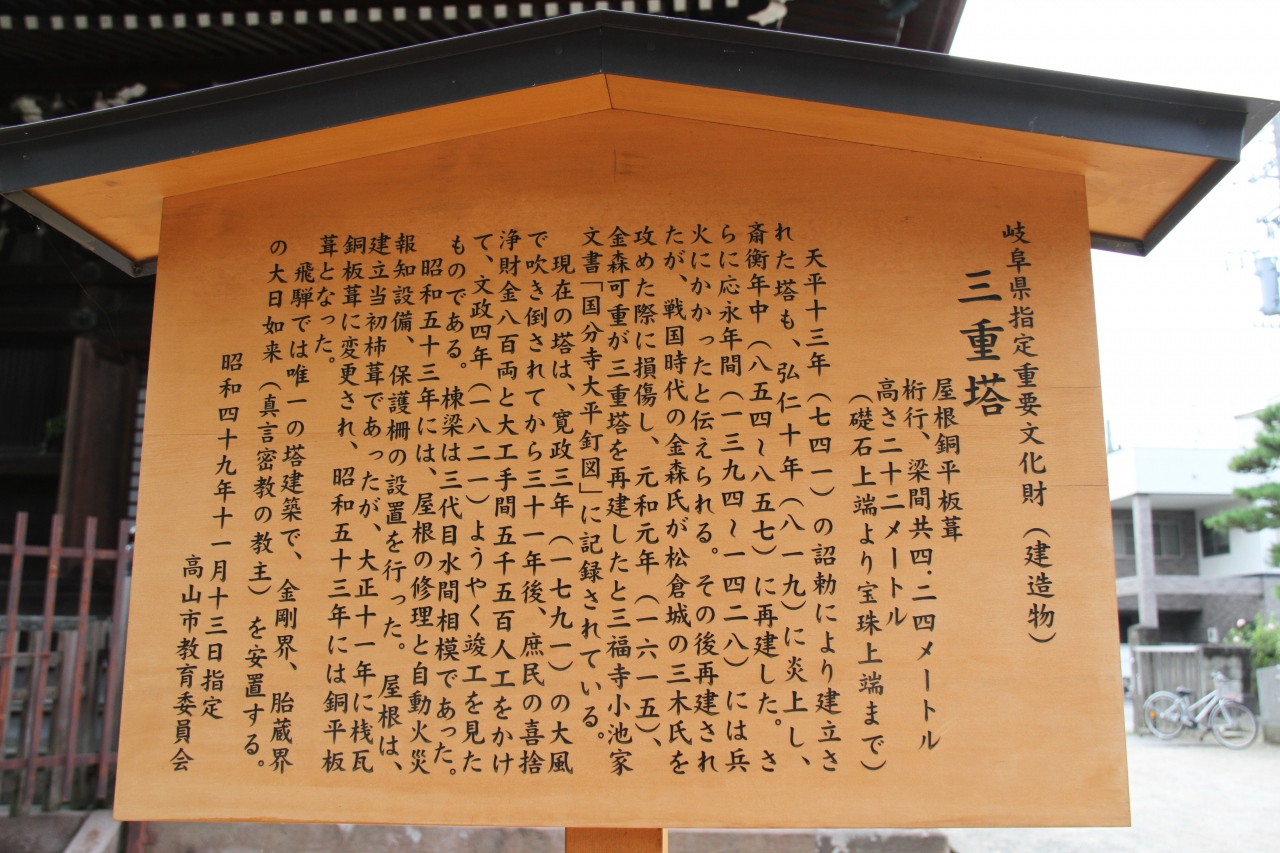 岐阜県指定重要文化財（建造物）
三重塔
屋根銅平板葺
桁行、梁間共四・二四メートル
高さ二十二メートル
（礎石上端より宝珠上端まで）
天平十三年（七四一）の詔勅により建立さ
れた塔も、弘仁十年（八一九）に炎上し、
斎衡年中（八五四〜八五七）に再建した。さ
らに応永年間（一三九四〜一四二八）には兵
火にかかったと伝えられる。その後再建され
たが、戦国時代の金森氏が松倉城の三木氏を
攻めた際に損傷し、元和元年（一六一五）、
金森可重が三重塔を再建したと三福寺小池家
文書「国分寺大平釘図」に記録されている。
現在の塔は、寛政三年（一七九一）の大風
で吹き倒されてから三十一年後、庶民の喜捨
浄財金八百両と大工手間五千五百人工をかけ
て、文政四年（一八二一）ようやく竣工を見た
ものである。棟梁は三代目水間相模であった。
昭和五十三年には、屋根の修理と自動火災
報知設備、保護柵の設置を行った。屋根は、
建立当初杮葺であったが、大正十一年に桟瓦
銅板葺に変更され、昭和五十三年には銅平板
葺となった。
飛騨では唯一の塔建築で、金剛界、胎蔵界
の大日如来（真言密教の教主）を安置する。
昭和四十九年十一月十三日指定
高山市教育委員会